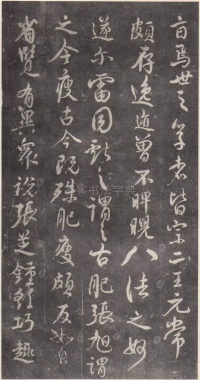 言焉世之學者皆宗二王元常
頗存逸迹曾不睥睨八法之妙
遂尔雷同獻之謂之古肥張旭謂
之今瘦古今既殊肥瘦頗反如自
省覽有異衆說張芝鍾繇巧趣